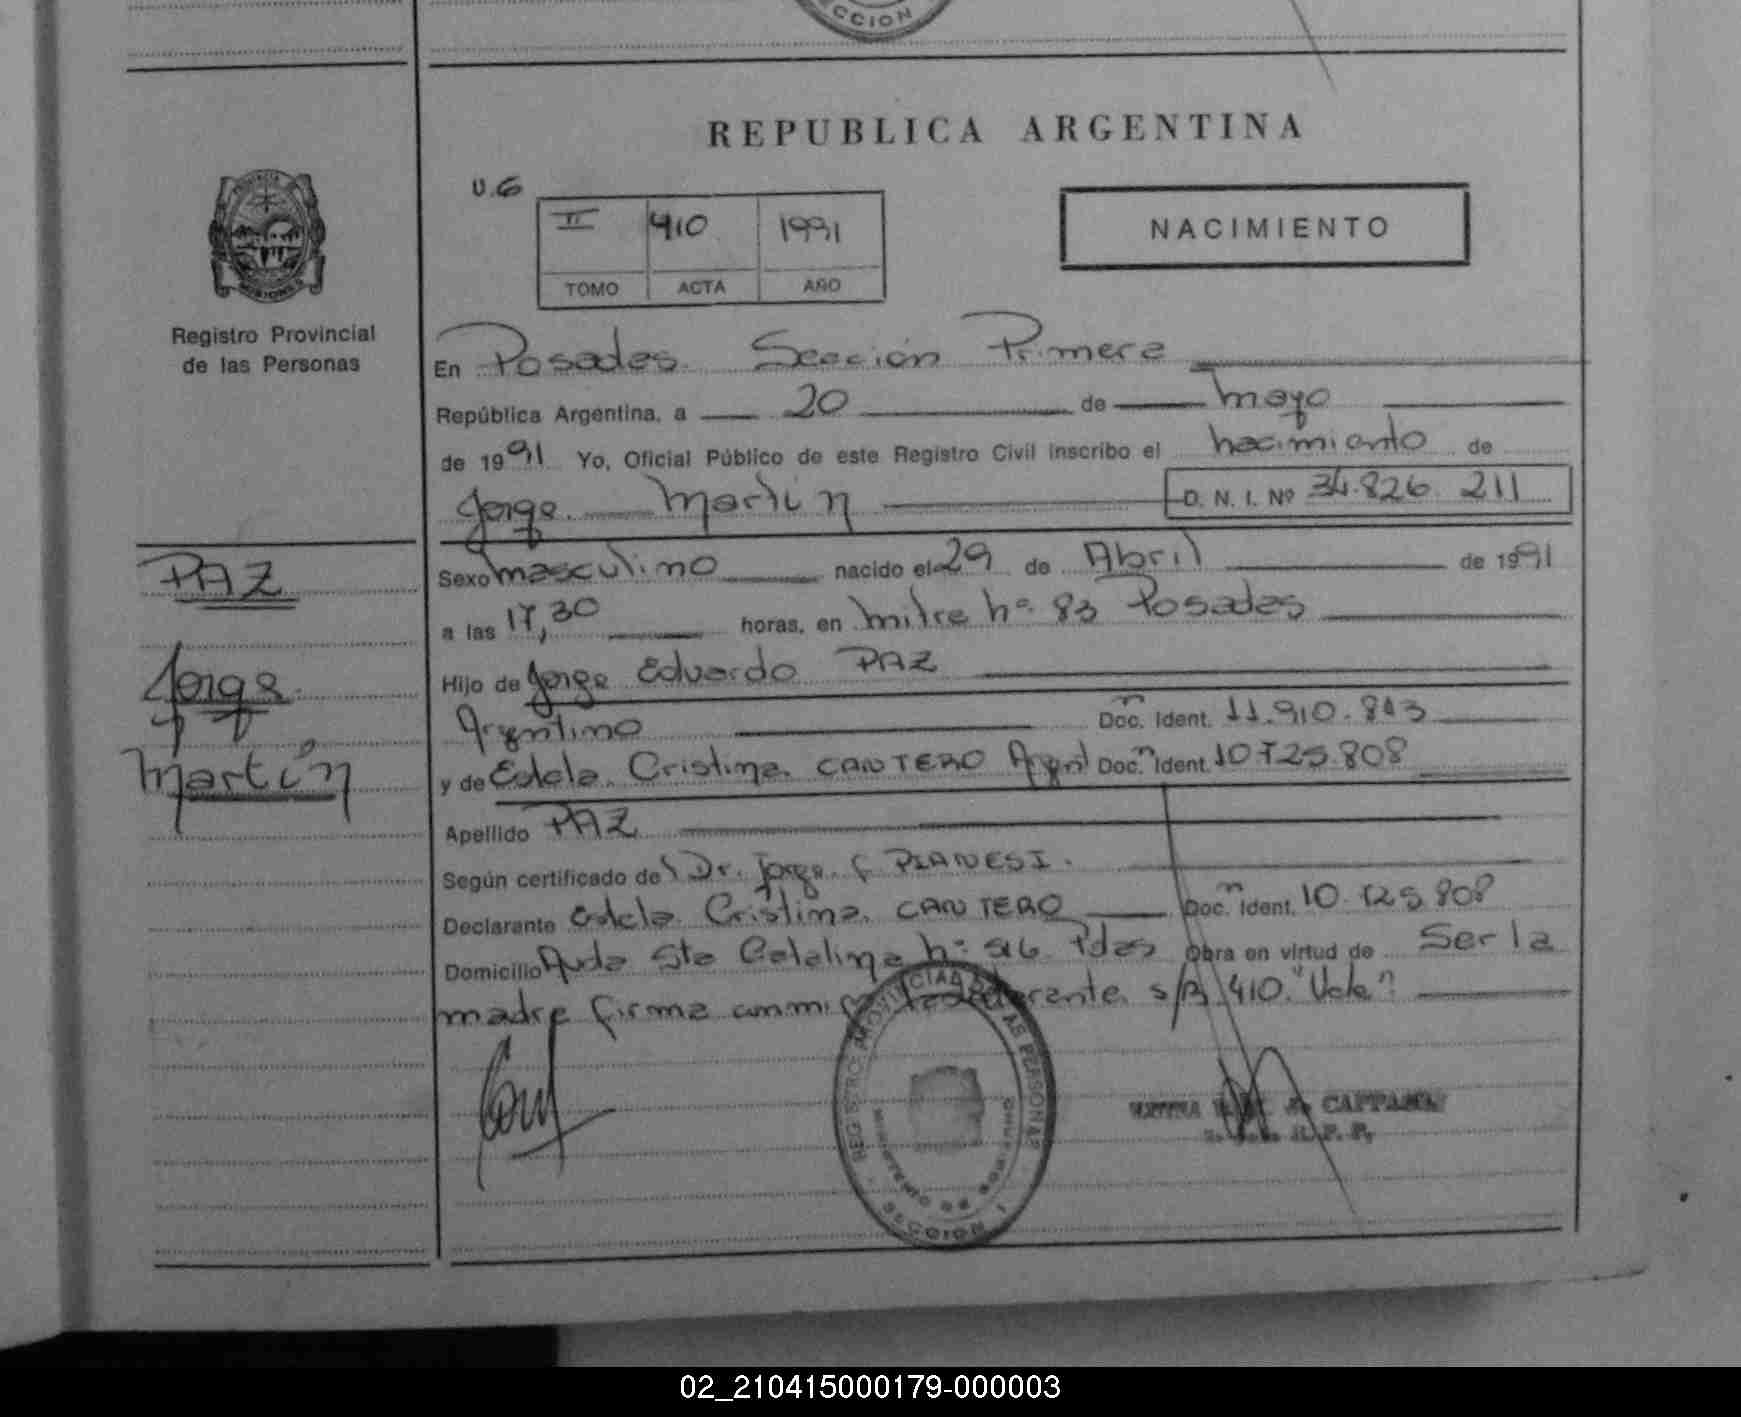 CCION
REPUBLICA ARGENTINA
U.6
II 410 1991
TOMO ACTA AÑO
NACIMIENTO
PROVINCIA
MISIONES
Registro Provincial
de las Personas
En Posadas Sección Primera
República Argentina, a 20 de mayo
de 1991 Yo, Oficial Público de este Registro Civil inscribo el nacimiento de
Jorge Martín D. N. I. Nº 34.826.211
PAZ
Jorge
Martín
Sexo masculino nacido el 29 de Abril de 1991
a las 17,30 horas, en mitre nº 83 Posadas
Hijo de Jorge Eduardo PAZ
Argentino Doc. Ident. 11.910.813
y de Estela Cristina CANTERO Argent Doc. Ident. 10.725.808
Apellido PAZ
Según certificado del Dr. Jorge PIANESI.
Declarante Estela Cristina CANTERO Doc. Ident. 10.725.808
Domicilio Avda Sta Catalina nº Pdas Obra en virtud de Ser la
madre firma s/R 410. "Vale"
REGISTRO PROVINCIAL DE LAS PERSONAS
MINISTERIO DE GOBIERNO
SECCION 1